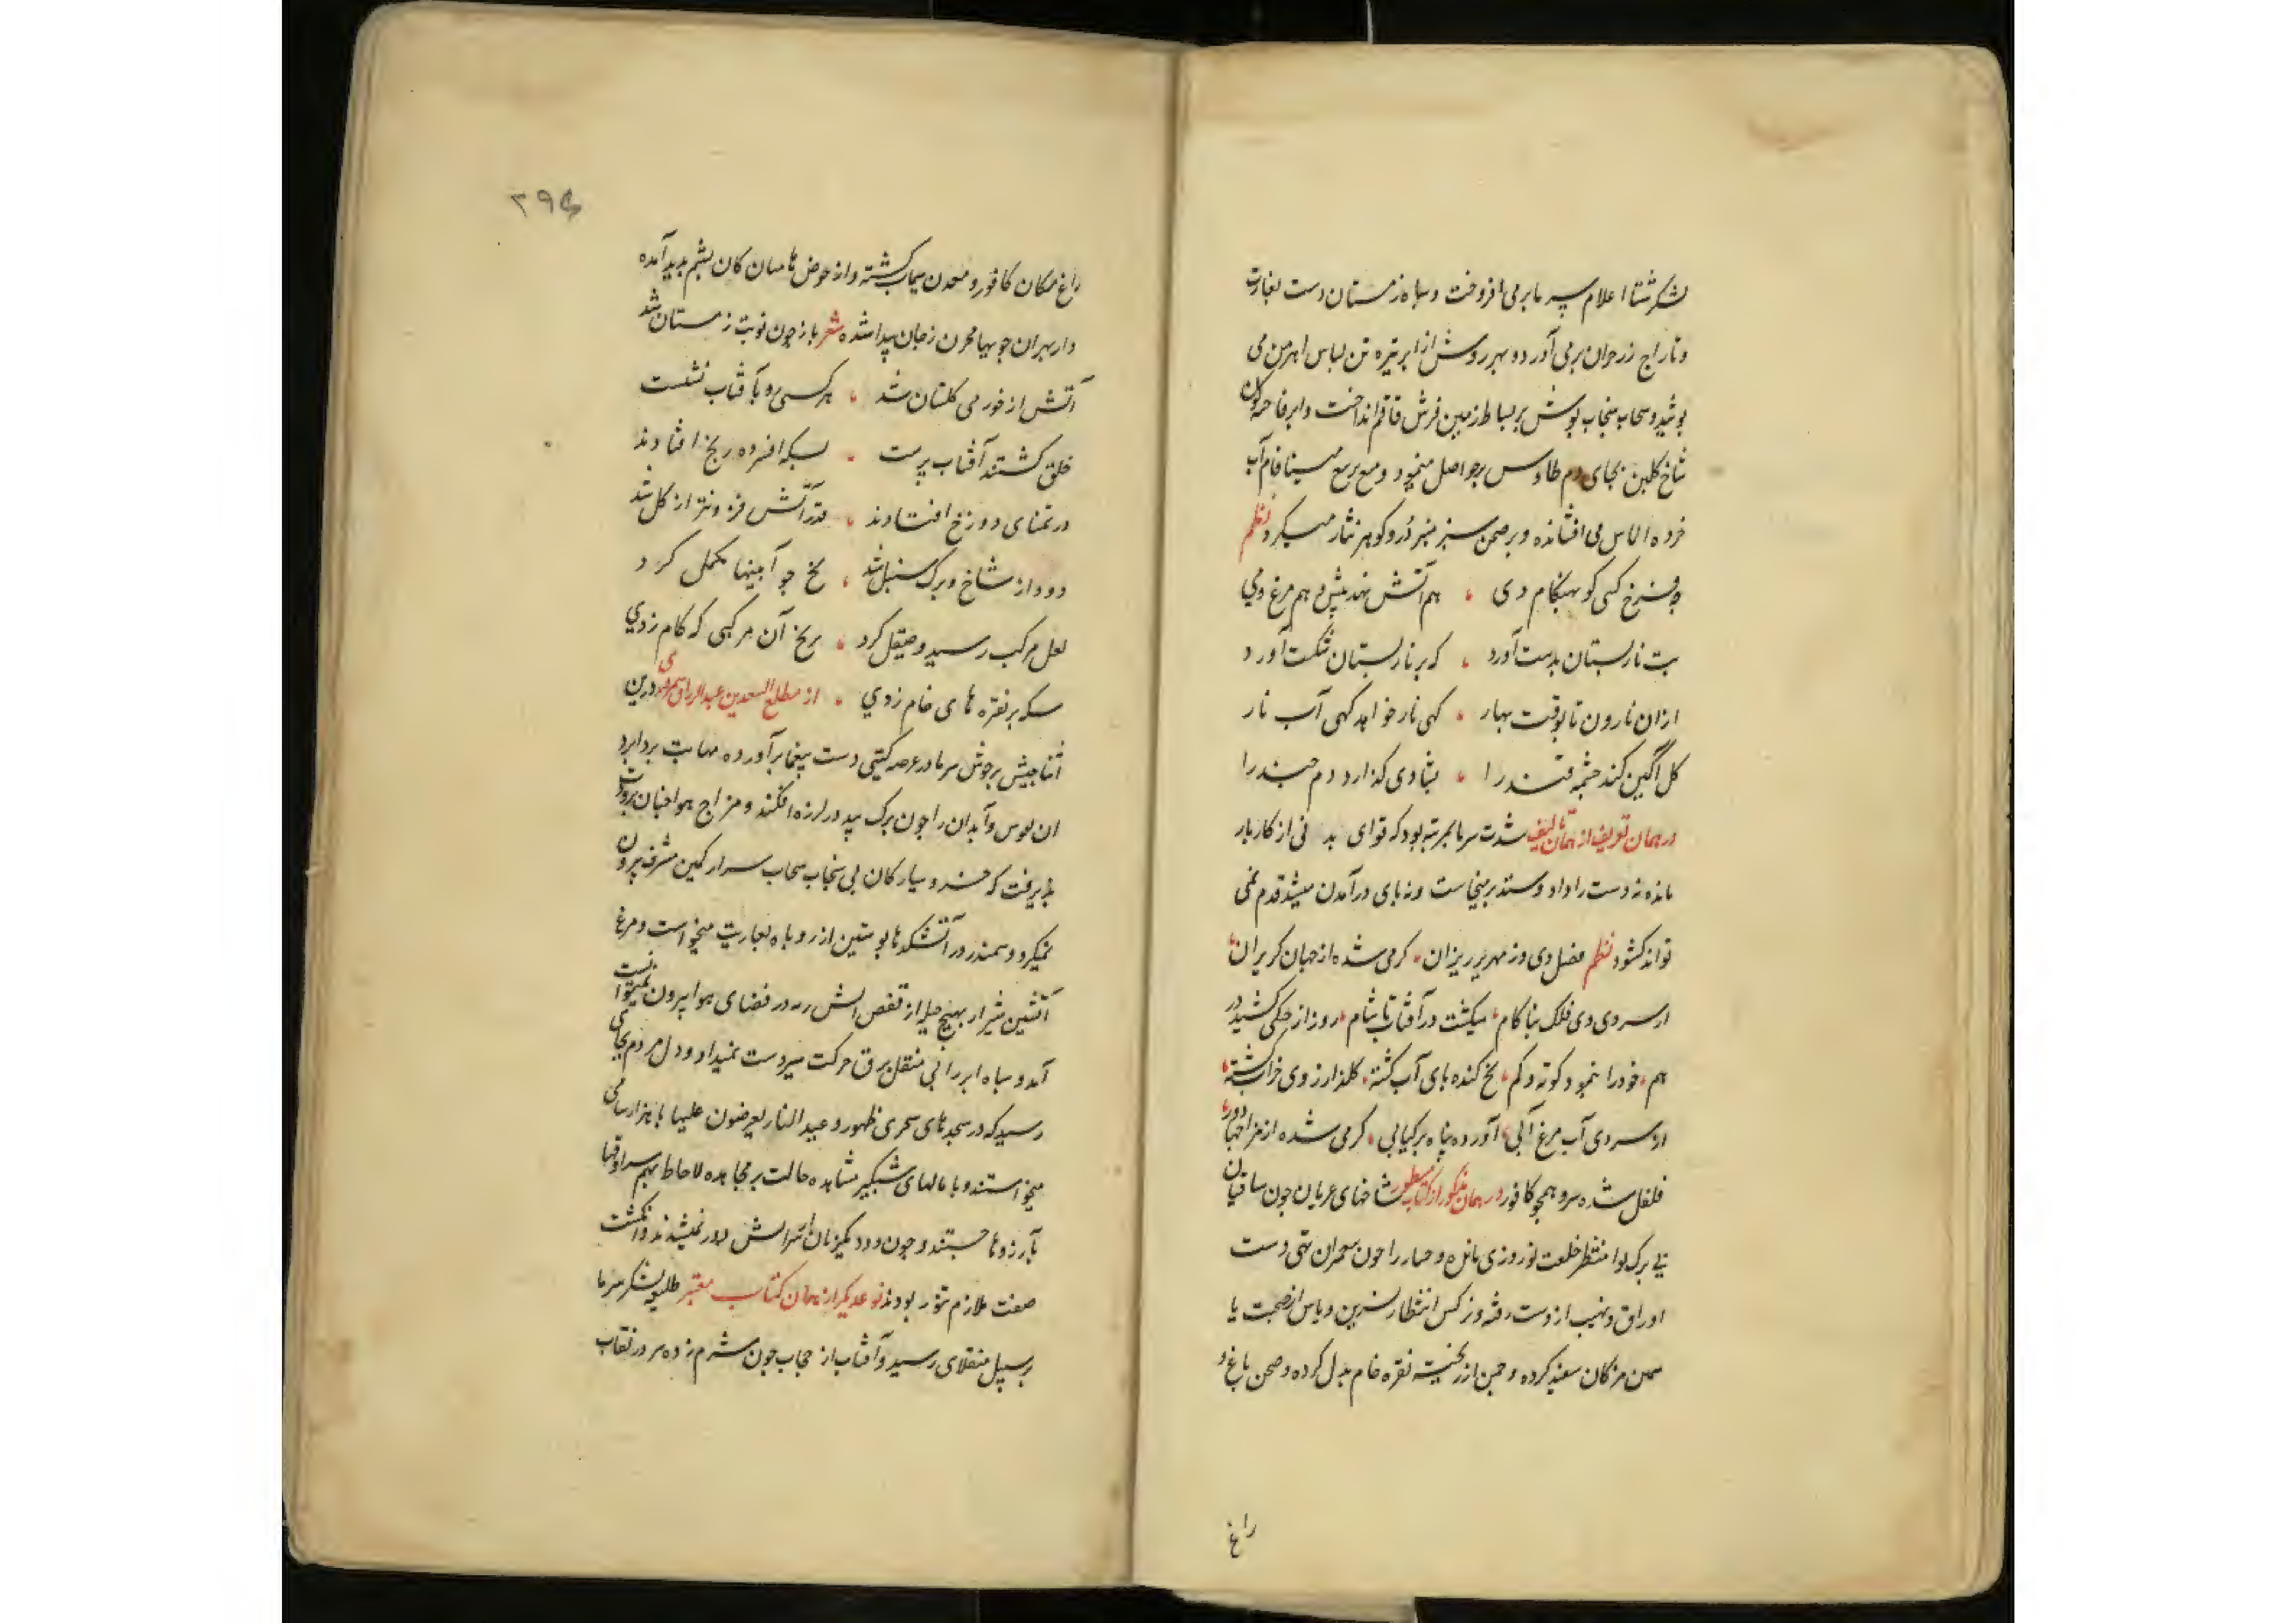 لشکر شتا اعلام سرما برمی افروخت و سپاه زمستان دست بغارت
و تاراج رزحوان برمی آورد و سپهر روشن از ابر تیره تن لباس اهرمن می
پوشید و سحاب سنجاب پوش بر بساط زمین فرش قاقم انداخت و ابر فاخته گون
شاخ گلبن بجای دم طاوس حواصل مینمود و مینا فام آب
خرده الماس می افشانده و بر صحن سبز در و گوهر نثار میکرد نظم
چه فرخ کسی کو بهنگام دی ، هم آتش نهد پیش و هم مرغ و می
بت نارپستان بدست آورد ، که بر نارپستان شکست آورد
ازان نارون تا بوقت بهار ، گهی نار خواهد گهی آب نار
گل آگین کند چشمه قند را ، بشادی گذارد دم چند را
در همان تعریف از همان تالیف شدت سرما بمرتبه بود که قوای بدنی از کار باز
مانده نه دست را داد و ستد برمیخاست و نه پای در آمدن میشد قدم نمی
تواند گشود نظم فصل دی و زمهریر ریزان ، گرمی شده از جهان گریزان ،
از سردی دی فلک بناکام ، میگشت در آفتاب تا شام ، روز از خنکی کشید در
هم ، خود را بنمود کوته و کم ، یخ کنده پای آب گشته ، گلزار ز وی خراب گشته ،
از سردی آب مرغ آبی ، آورده پناه بر کبابی ، گرمی شده از مزاجها دور ،
فلفل شده سرد همچو کافور در همان مذکور از کتاب مسطور شاخهای عریان چون ساقیان
بی برگ و نوا منتظر خلعت نوروزی مانده و چنار را چون تهی دست
اوراق و نهیب از دست رفته و نرگس انتظار نسرین و یاس از صحبت یا
سمن مژگان سفید کرده و چمن از گنجینه نقره خام بدل کرده و صحن باغ و
راغ
۲۹۵
راغ مکان کافور و معدن سیماب گشته و از حوض کان یشم پدید آمده
و از جویها مخزن پیدا شده شعر باز چون نوبت زمستان شد
آتش از خورمی گلستان شد ، هر کسی رو بآفتاب نشست
خلق گشتند آفتاب پرست ، بسکه افسرده ریخ افتادند
در تمنای دوزخ افتادند ، قدر آتش فزونتر از گل شد
دود از شاخ و برگ سنبل شد ، یخ چو آبینها مکمل کرد
لعل مرکب رسید و صیقل کرد ، بریخ آن مرکبی که گام زدی
سکه بر نقره های خام زدی ، از مطلع السعدین عبدالرزاق سمرقندی درین
اثنا جیش پرجوش سرما در عرصه گیتی دست بیغما برآورده مهابت بردابرد
آن نفوس و آبدان را چون برگ بید در لرزه افکند و مزاج هوا چنان برودت
پذیرفت که خسرو سیارگان بی سنجاب سحاب سر از کمین مشرق بیرون
نمیکرد و سمندر در آتشکدها پوستین از روباه بعاریت میخواست و مرغ
آتشین شرار بهیچ حیله از قفص آتش در فضای هوا بیرون نمیتوانست
آمد و سپاه ابر را بی منقل برق حرکت میسر دست نمیداد و دل مردم بجایی
رسید که در سجدهای سحری ظهور وعید النار یعرضون علیها با هزار سامی
میخواستند و با نالهای شبگیر مشاهده حالت بر مجاهده لاحاط بهم سرادقها
بآرزوها جستند و چون دود یکزمان از سر آتش دور نمیشدند و انگشت
صفت ملازم تنور بودند نوعدیگر از همان کتاب معتبر طلیعه لشکر سرما
بر سبیل منقلای رسید و آفتاب از حجاب چون شرم زده سر در نقاب